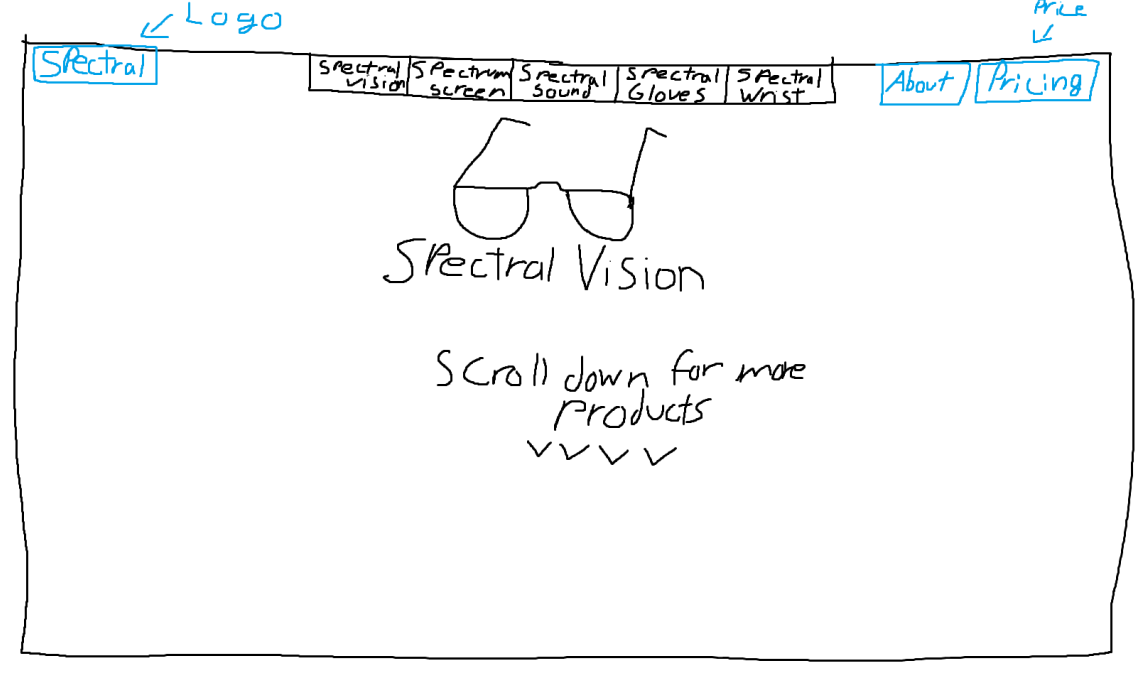 Logo
Price
Spectral
Spectral Vision
Spectrum Screen
Spectral Sound
Spectral Gloves
Spectral Wrist
About
Pricing
Spectral Vision
Scroll down for more
products